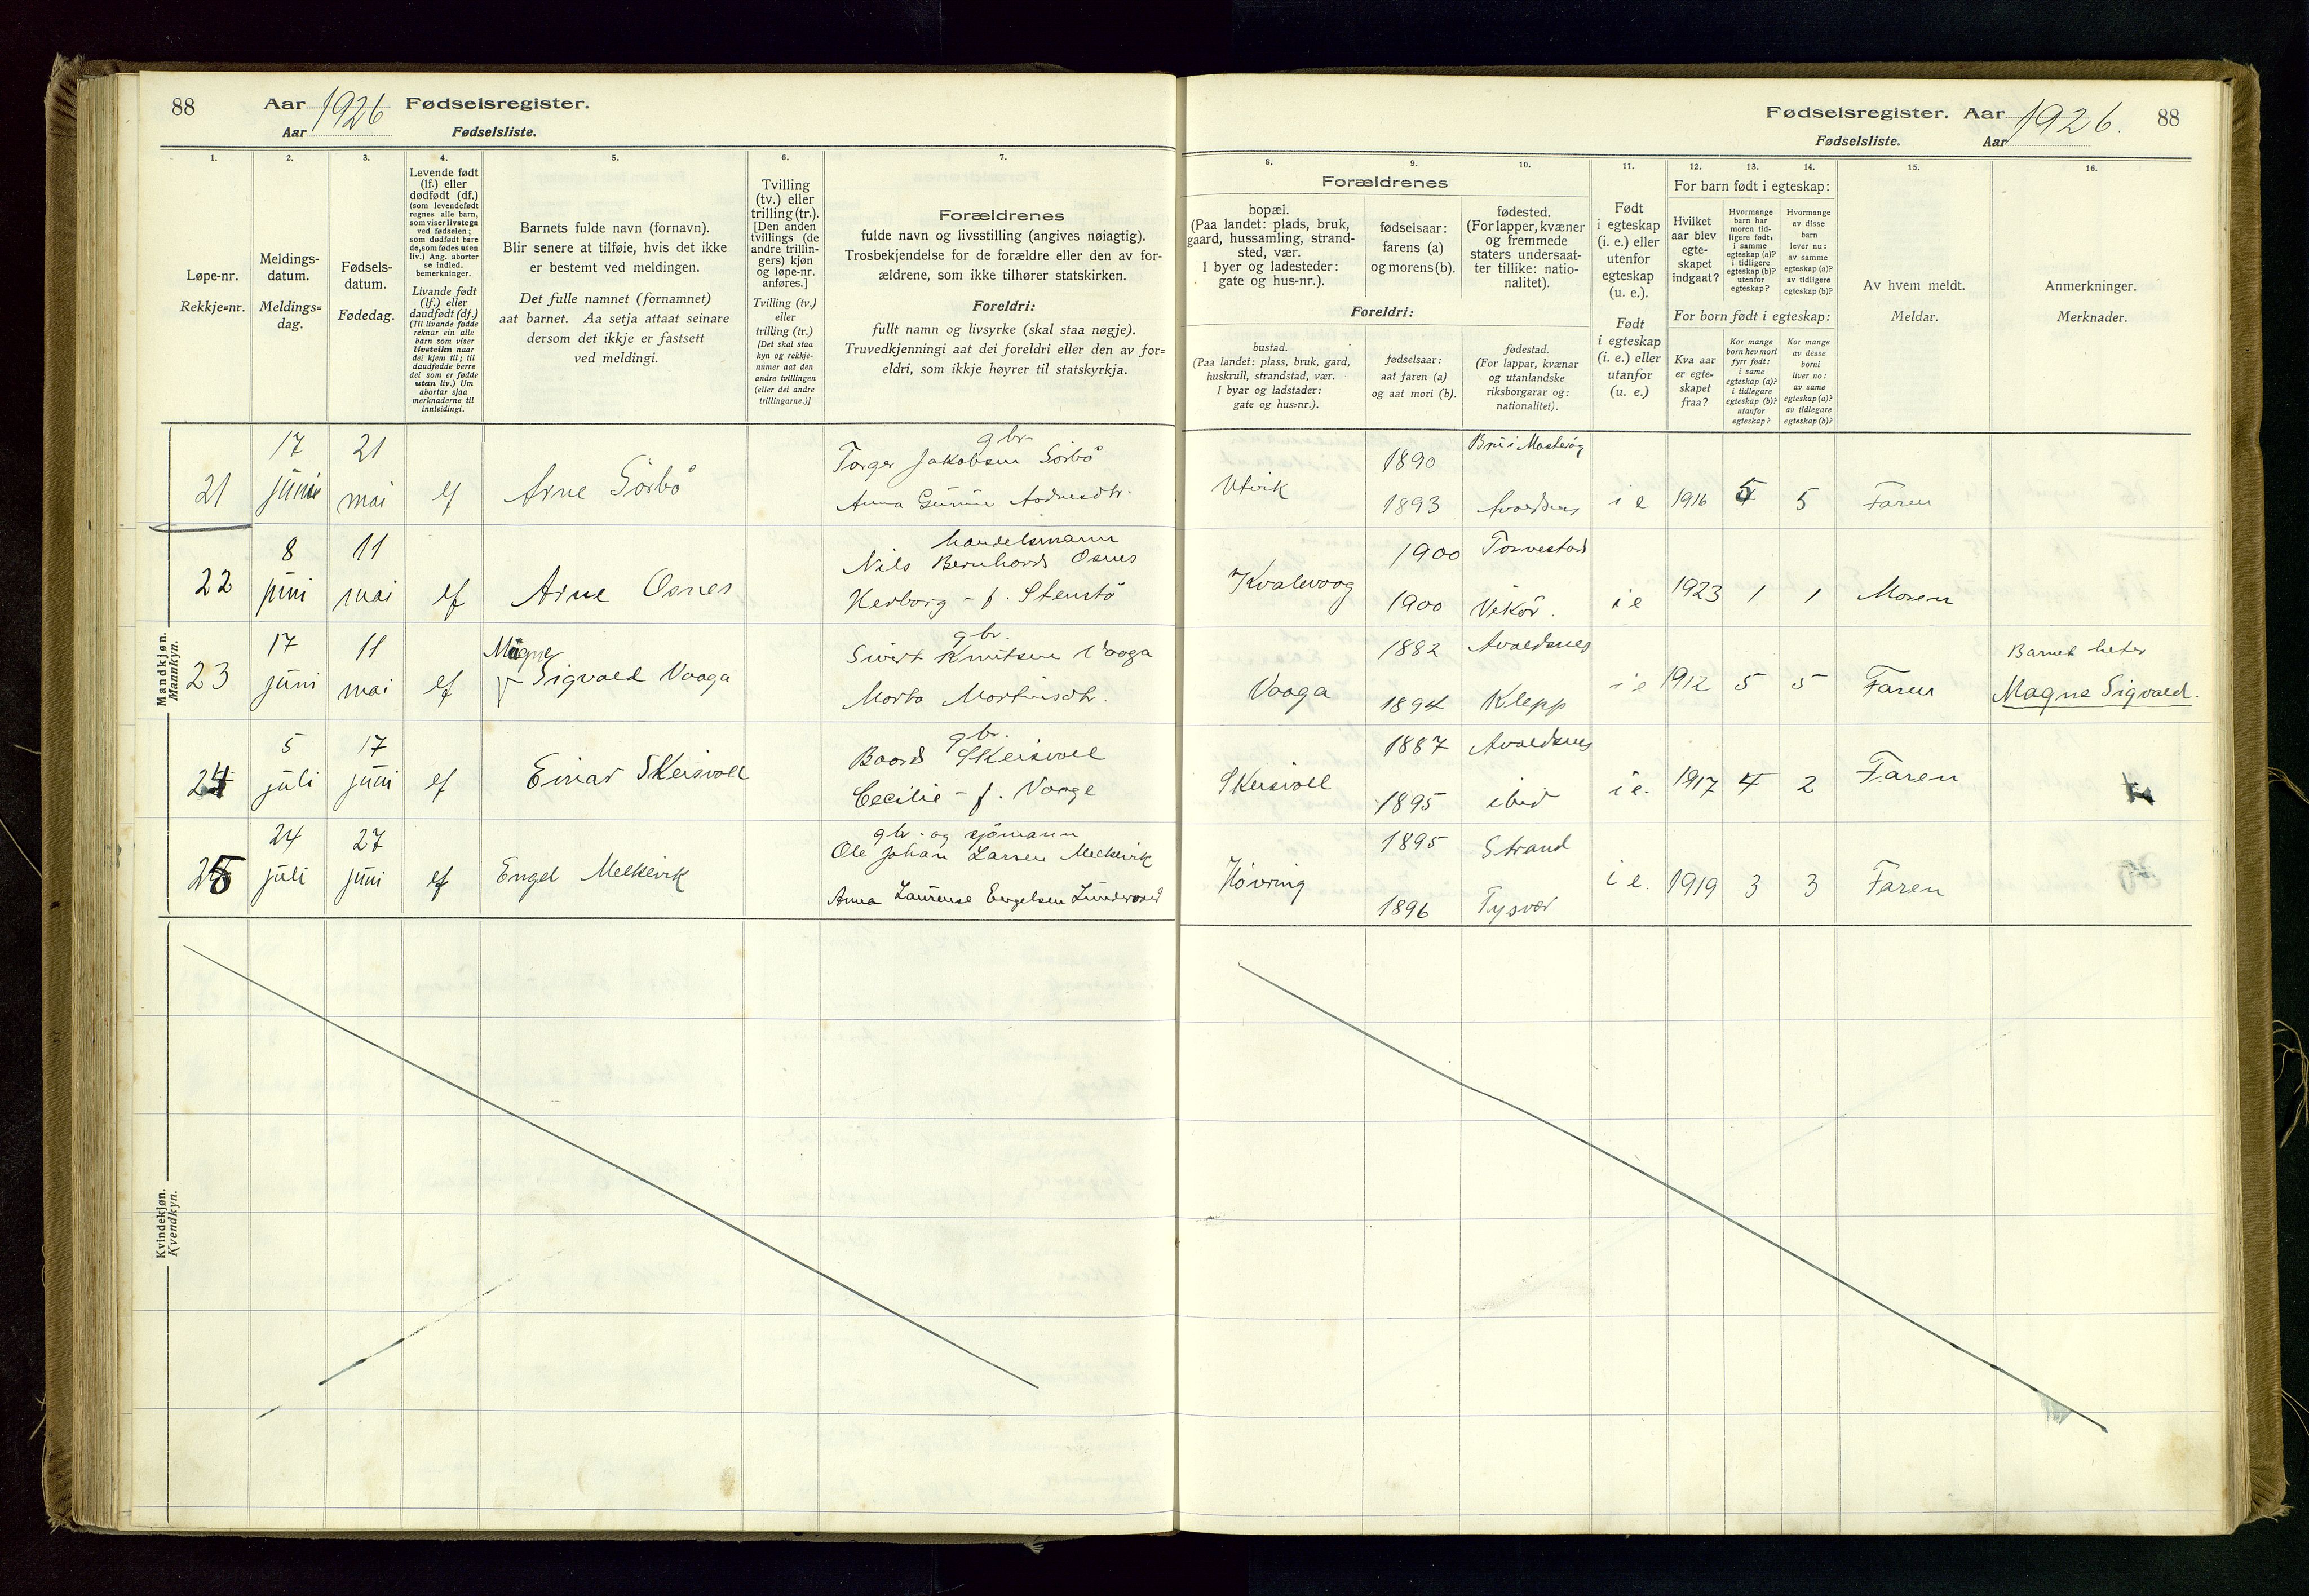 88 Aar 1926 Fødselsregister.
Aar Fødselsliste.
1. 2. 3. 4. 5. 6. 7.
Løpe-nr.
Rekkje=nr.
Meldings-
datum.
Meldings=
dag.
Fødsels-
datum.
Fødedag.
Levende født
(lf.) eller
dødfødt (df.)
(som levendefødt
regnes alle barn,
som viser livstegn
ved fødselen;
som dødfødt bare
de, som fødes uten
liv.) Ang. aborter
se indled.
bemerkninger.
Livande født
(lf.) eller
daudfødt (df.)
(Til livande fødde
reknar ein alle
barn som viser
livsteikn naar
dei kjem til; til
daudfødde berre
dei som er fødde
utan liv.) Um
abortar sjaa
merknaderne til
innleidingi.
Barnets fulde navn (fornavn).
Blir senere at tilføie, hvis det ikke
er bestemt ved meldingen.
Det fulle namnet (fornamnet)
aat barnet. Aa setja attaat seinare
dersom det ikkje er fastsett
ved meldingi.
Tvilling
(tv.) eller
trilling (tr.).
[Den anden
tvillings (de
andre trillin-
gers) kjøn
og løpe-nr.
anføres.]
Tvilling (tv.)
eller
trilling (tr.)
[Det skal staa
kyn og rekkje-
numer aat den
andre tvillingen
(eller dei andre
trillingarne.)]
Forældrenes
fulde navn og livsstilling (angives nøiagtig).
Trosbekjendelse for de forældre eller den av for-
ældrene, som ikke tilhører statskirken.
Foreldri:
fullt namn og livsyrke (skal staa nøgje).
Truvedkjenningi aat dei foreldri eller den av for=
eldri, som ikkje høyrer til statskyrkja.
Mandkjøn.
Mannkyn.
17 21 gbr.
Torger Jakobsen Sörbö
21 juni mai lf Arne Sörbö
8 11 handelsmann
Nils Bernhard Osnes
22 juni mai lf Arne Osnes Herborg - f. Stenstö
17 11 Magne gbr.
Sivert Knutsen Vaaga
23 juni mai lf Sigvald Vaaga
5 17 gbr.
Baard Skeisvoll
24 juli juni lf Einar Skeisvoll Cecilie - f. Vaage
24 27 gbr. og sjömann
Ole Johan Larsen Melkevik
25 juli juni lf Engel Melkevik
Kvindekjøn.
Kvendkyn.
Fødselsregister. Aar 1926. 88
Fødselsliste. Aar
8. 9. 10. 11. 12. 13. 14. 15. 16.
Forældrenes
bopæl.
(Paa landet: plads, bruk,
gaard, hussamling, strand-
sted, vær.
I byer og ladesteder:
gate og hus-nr.).
fødselsaar:
farens (a)
og morens (b).
fødested.
(For lapper, kvæner
og fremmede
staters undersaat-
ter tillike: natio-
nalitet).
Foreldri:
bustad.
(Paa landet: plass, bruk, gard,
huskrull, strandstad, vær.
I byar og ladstader:
gate og hus=nr.).
fødselsaar:
aat faren (a)
og aat mori (b).
fødestad.
(For lappar, kvænar
og utanlandske
riksborgarar og:
nationalitet).
Født
i egteskap
(i. e.) eller
utenfor
egteskap
(u. e.).
Født
i egteskap
(i. e.) eller
utanfor
(u. e.)
For barn født i egteskap:
Hvilket
aar blev
egte-
skapet
indgaat?
Hvormange
barn har
moren tid-
ligere født,
i samme
egteskap (a)?
i tidligere
egteskap (b)?
utenfor
egteskap?
Hvormange
av disse
barn
lever nu:
av samme
egteskap (a)?
av tidligere
egteskap (b)?
For born født i egteskap:
Kva aar
er egte=
skapet
fraa?
Kor mange
born hev mori
fyrr født:
i same
egteskap (a)?
i tidlegare
egteskap (b)?
utanfor
egteskap?
Kor mange
av desse
borni
liver no:
av same
egteskap (a)?
av tidlegare
egteskap (b)?
Av hvem meldt.
Meldar.
Anmerkninger.
Merknader.
1890
Utvik 1893 Avaldsnes i e 1916 5 5 Faren
1900 Torvestad
Kvalevaag 1900 Vikör. i e 1923 1 1 Moren
1882 Avaldsnes Barnet heter
Vaaga 1894 Klepp i e 1912 5 5 Faren Magne Sigvald.
1887 Avaldsnes
Skeisvoll 1895 ibid i e. 1917 4 2 Faren
1895 Strand
Kövring 1896 Tysvær i e. 1919 3 3 Faren